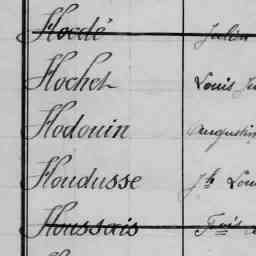 Hoedé Julien
Hochet Louis
Hodouin Augustin
Houdusse Jh Loui
Houssais Fçois